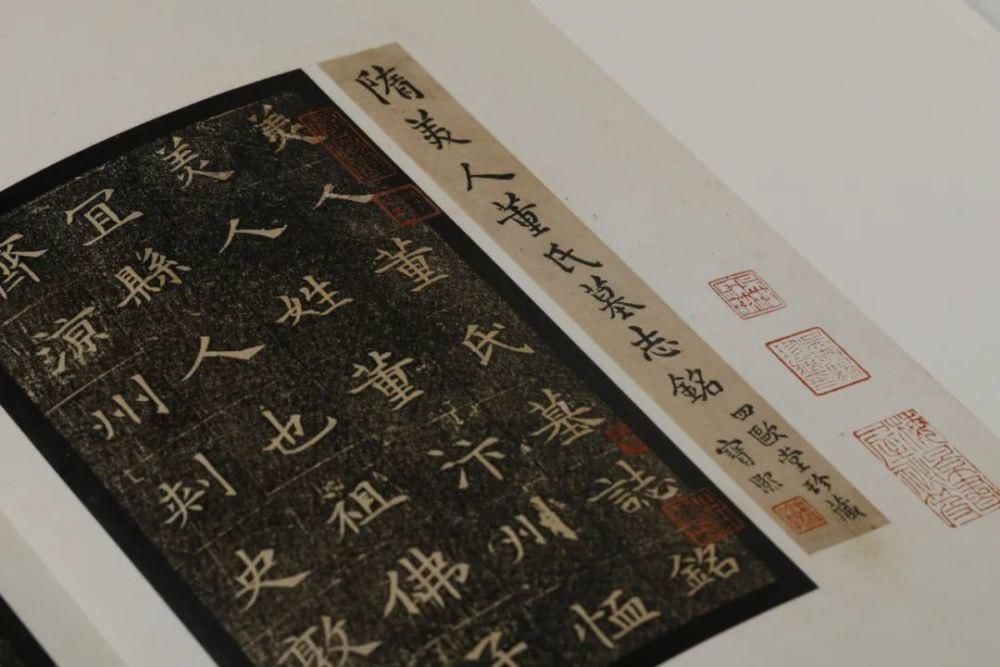 隋美人董氏墓志銘
四歐堂珍藏
寶熙
美人董氏墓誌銘
美人姓董汴州恤
冝縣人也祖佛子
齊涼州刺史敦